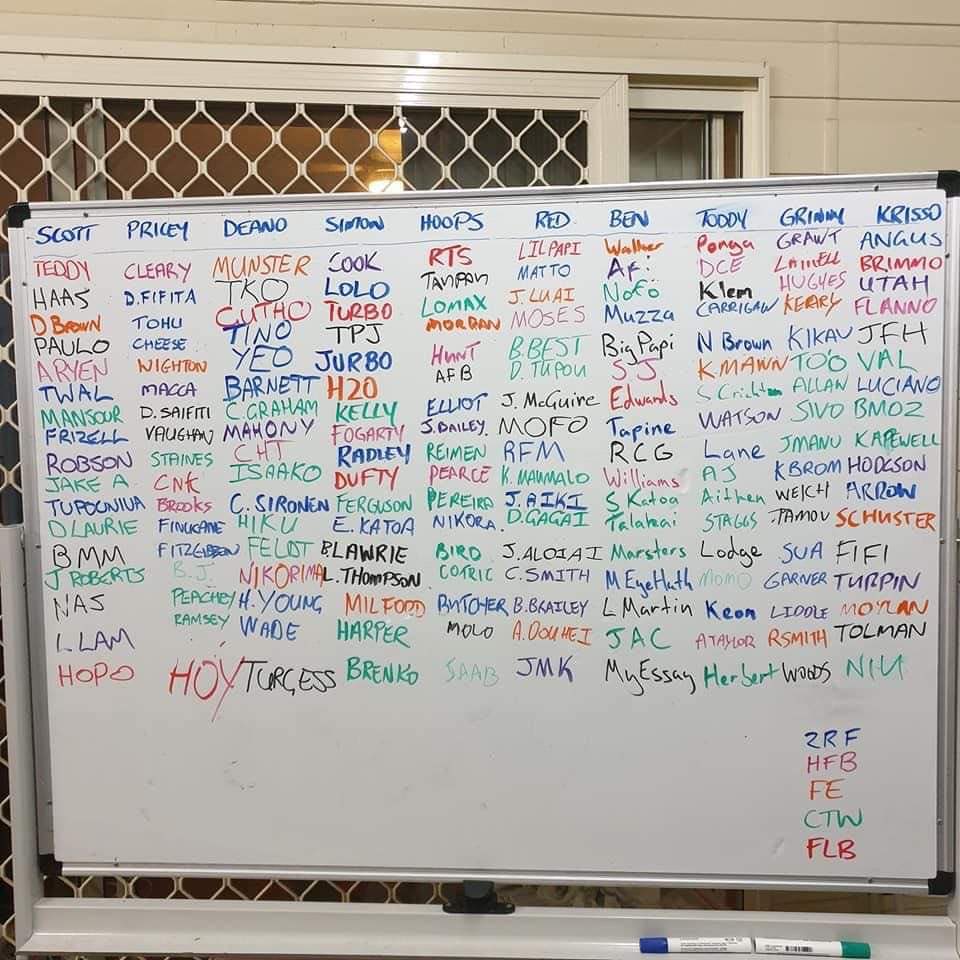 SCOTT PRICEY DEANO SIMON HOOPS RED BEN TODDY GRINNY KRISSO
TEDDY CLEARY MUNSTER COOK RTS LILPAPI Walker Ponga GRAWT ANGUS
HAAS D.FIFITA TKO LOLO MATTO AFi DCE BRIMMO
D BROWN TOHU GUTHO TURBO LOMAX J.LUAI NoFo Klem HUGHES UTAH
PAULO CHEESE TINO TPJ MORGAN MOSES Muzza CARRIGAN KERRY FLANNO
ARYEN WIGHTON YEO JURBO HUNT B.BEST Big Papi N Brown KIKAV JFH
TWAL MACCA BARNETT H20 AFB D.TUPOU SJ K MAWN TOO VAL
MANSOUR D.SAIFITI C.GRAHAM KELLY ELLIOT J.McGuire Edwards S Crichton ALLAN LUCIANO
FRIZELL VAUGHAN MAHONY FOGARTY J.BAILEY. MOFO Tapine WATSON SIVO BMOZ
ROBSON STAINES CHT RADLEY REIMEN RFM RCG Lane JMANU KAPEWELL
JAKE A CNK ISAAKO DUFTY PEARCE K.MAUMALO Williams AJ KBROM HODGSON
TUPOUNIUA Brooks C.SIRONEN FERGUSON PEREIRA S Katoa Aitken WELCH ARROW
D LAURIE FINUCANE HIKU E.KATOA NIKORA. D.GAGAI Talakai STAGGS PAMOU SCHUSTER
BMM FITZGIBBON FELDT B LAWRIE BIRD J.ALOIAI Marsters Lodge SUA FIFI
J ROBERTS B.J. NIKORIMA L.THOMPSON COTRIC C.SMITH M EyeHath MOMO GARNER TURPIN
NAS PEACHEY H.YOUNG MILFORD BUTCHER B.BRAILEY L Martin Keon LIDDLE MOYLAN
L LAM RAMSEY WADE HARPER MOLO A.DOUHEI JAC A TAYLOR RSMITH TOLMAN
HOPO HOY TURGESS BRENKO SAAB JMK MyEssay Herbert WOODS NIU
2RF
HFB
FE
CTW
FLB